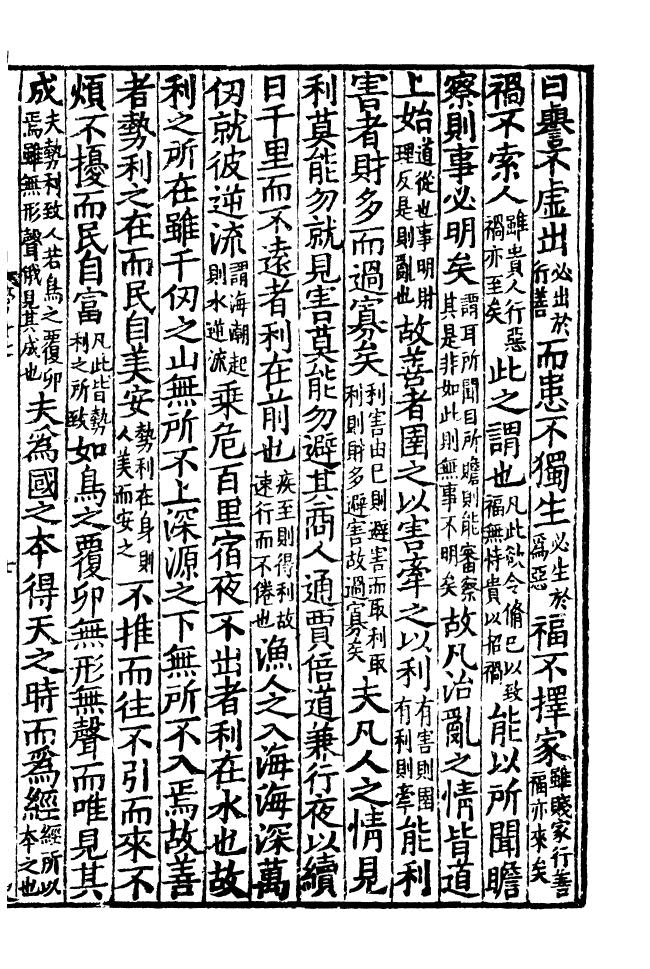 曰譽不虛出必出於行善而患不獨生必生於爲惡福不擇家雖賤家行善福亦來矣
禍不索人雖貴人行惡禍亦至矣此之謂也凡此欲令脩已以致福無恃貴以招禍能以所聞瞻
察則事必明矣謂耳所聞目所瞻則能審察其是非如此則無事不明矣故凡治亂之情皆道
上始道從也事明財理反是則亂也故善者圉之以害牽之以利有害則圉有利則牽能利
害者財多而過寡矣利害由已則避害而取利取利則財多避害故過寡矣夫凡人之情見
利莫能勿就見害莫能勿避其商人通賈倍道兼行夜以續
日千里而不遠者利在前也疾至則得利故速行而不倦也漁人之入海海深萬
仞就彼逆流謂海潮起則水逆流乘危百里宿夜不出者利在水也故
利之所在雖千仞之山無所不上深源之下無所不入焉故善
者勢利之在而民自美安勢利在身則人美而安之不推而往不引而來不
煩不擾而民自富凡此皆勢利之所致如鳥之覆卵無形無聲而唯見其
成夫勢利致人若鳥之覆卵焉雖無形聲俄見其成也夫爲國之本得天之時而爲經經所以本之也